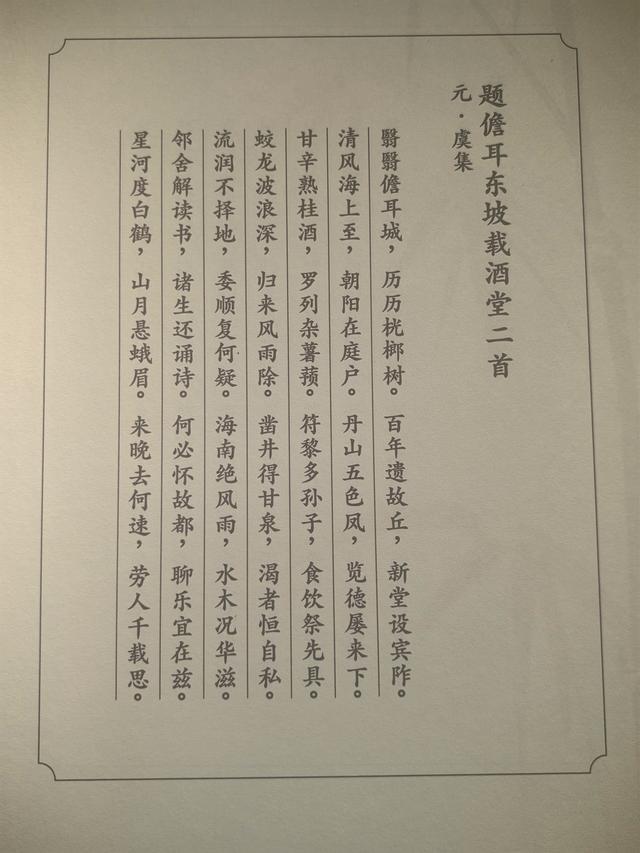 题儋耳东坡载酒堂二首
元·虞集
翳翳儋耳城，历历桄榔树。百年遗故丘，新堂设宾阼。
清风海上至，朝阳在庭户。丹山五色凤，览德屡来下。
甘辛熟桂酒，罗列杂薯蓣。符黎多孙子，食饮祭先具。
蛟龙波浪深，归来风雨除。凿井得甘泉，渴者恒自私。
流润不择地，委顺复何疑。海南绝风雨，水木况华滋。
邻舍解读书，诸生还诵诗。何必怀故都，聊乐宜在兹。
星河度白鹤，山月悬蛾眉。来晚去何速，劳人千载思。